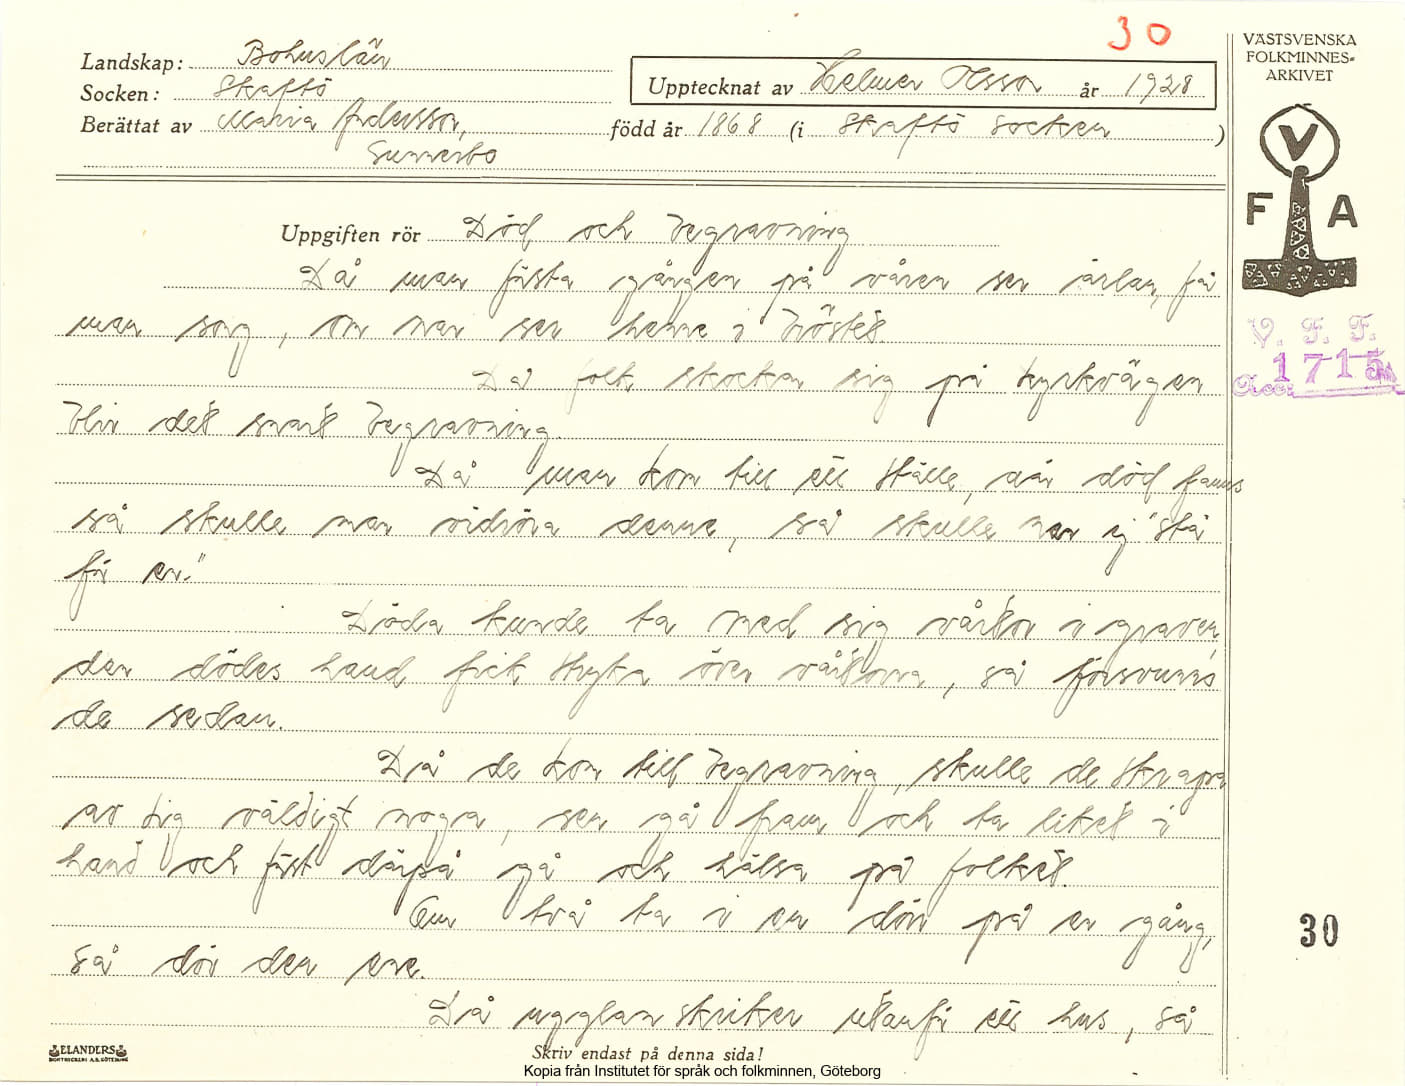 30
VÄSTSVENSKA
FOLKMINNES-
ARKIVET
Landskap: Bohuslän
Socken: Skaftö
Upptecknat av Helmer Olsson år 1928
Berättat av Maria Andersson, född år 1868 (i Skaftö socken)
Gunnesbo
V
F A
Uppgiften rör Död och begravning
Då man första gången på våren ser ärlan, får
man sorg, om man ser henne i bröstet.
V. F. F.
Acc. 1715
Då folk skockar sig på kyrkvägen
blir det snart begravning.
Då man kom till ett ställe, där död fanns
så skulle man vidröra denne, så skulle han ej "stå
för en."
Döda kunde ta med sig vårtor i graven,
den dödes hand fick stryka över vårtorna, så försvunno
de sedan.
Då de kom till begravning, skulle de skrapa
av sig väldigt noga, sen gå fram och ta liket i
hand och först därpå gå och hälsa på folket.
Om två ta i en dörr på en gång,
så dör den ene.
30
Då ugglan skriker utanför ett hus, så
ELANDERS
BOKTRYCKERI A.B. GÖTEBORG
Skriv endast på denna sida!
Kopia från Institutet för språk och folkminnen, Göteborg